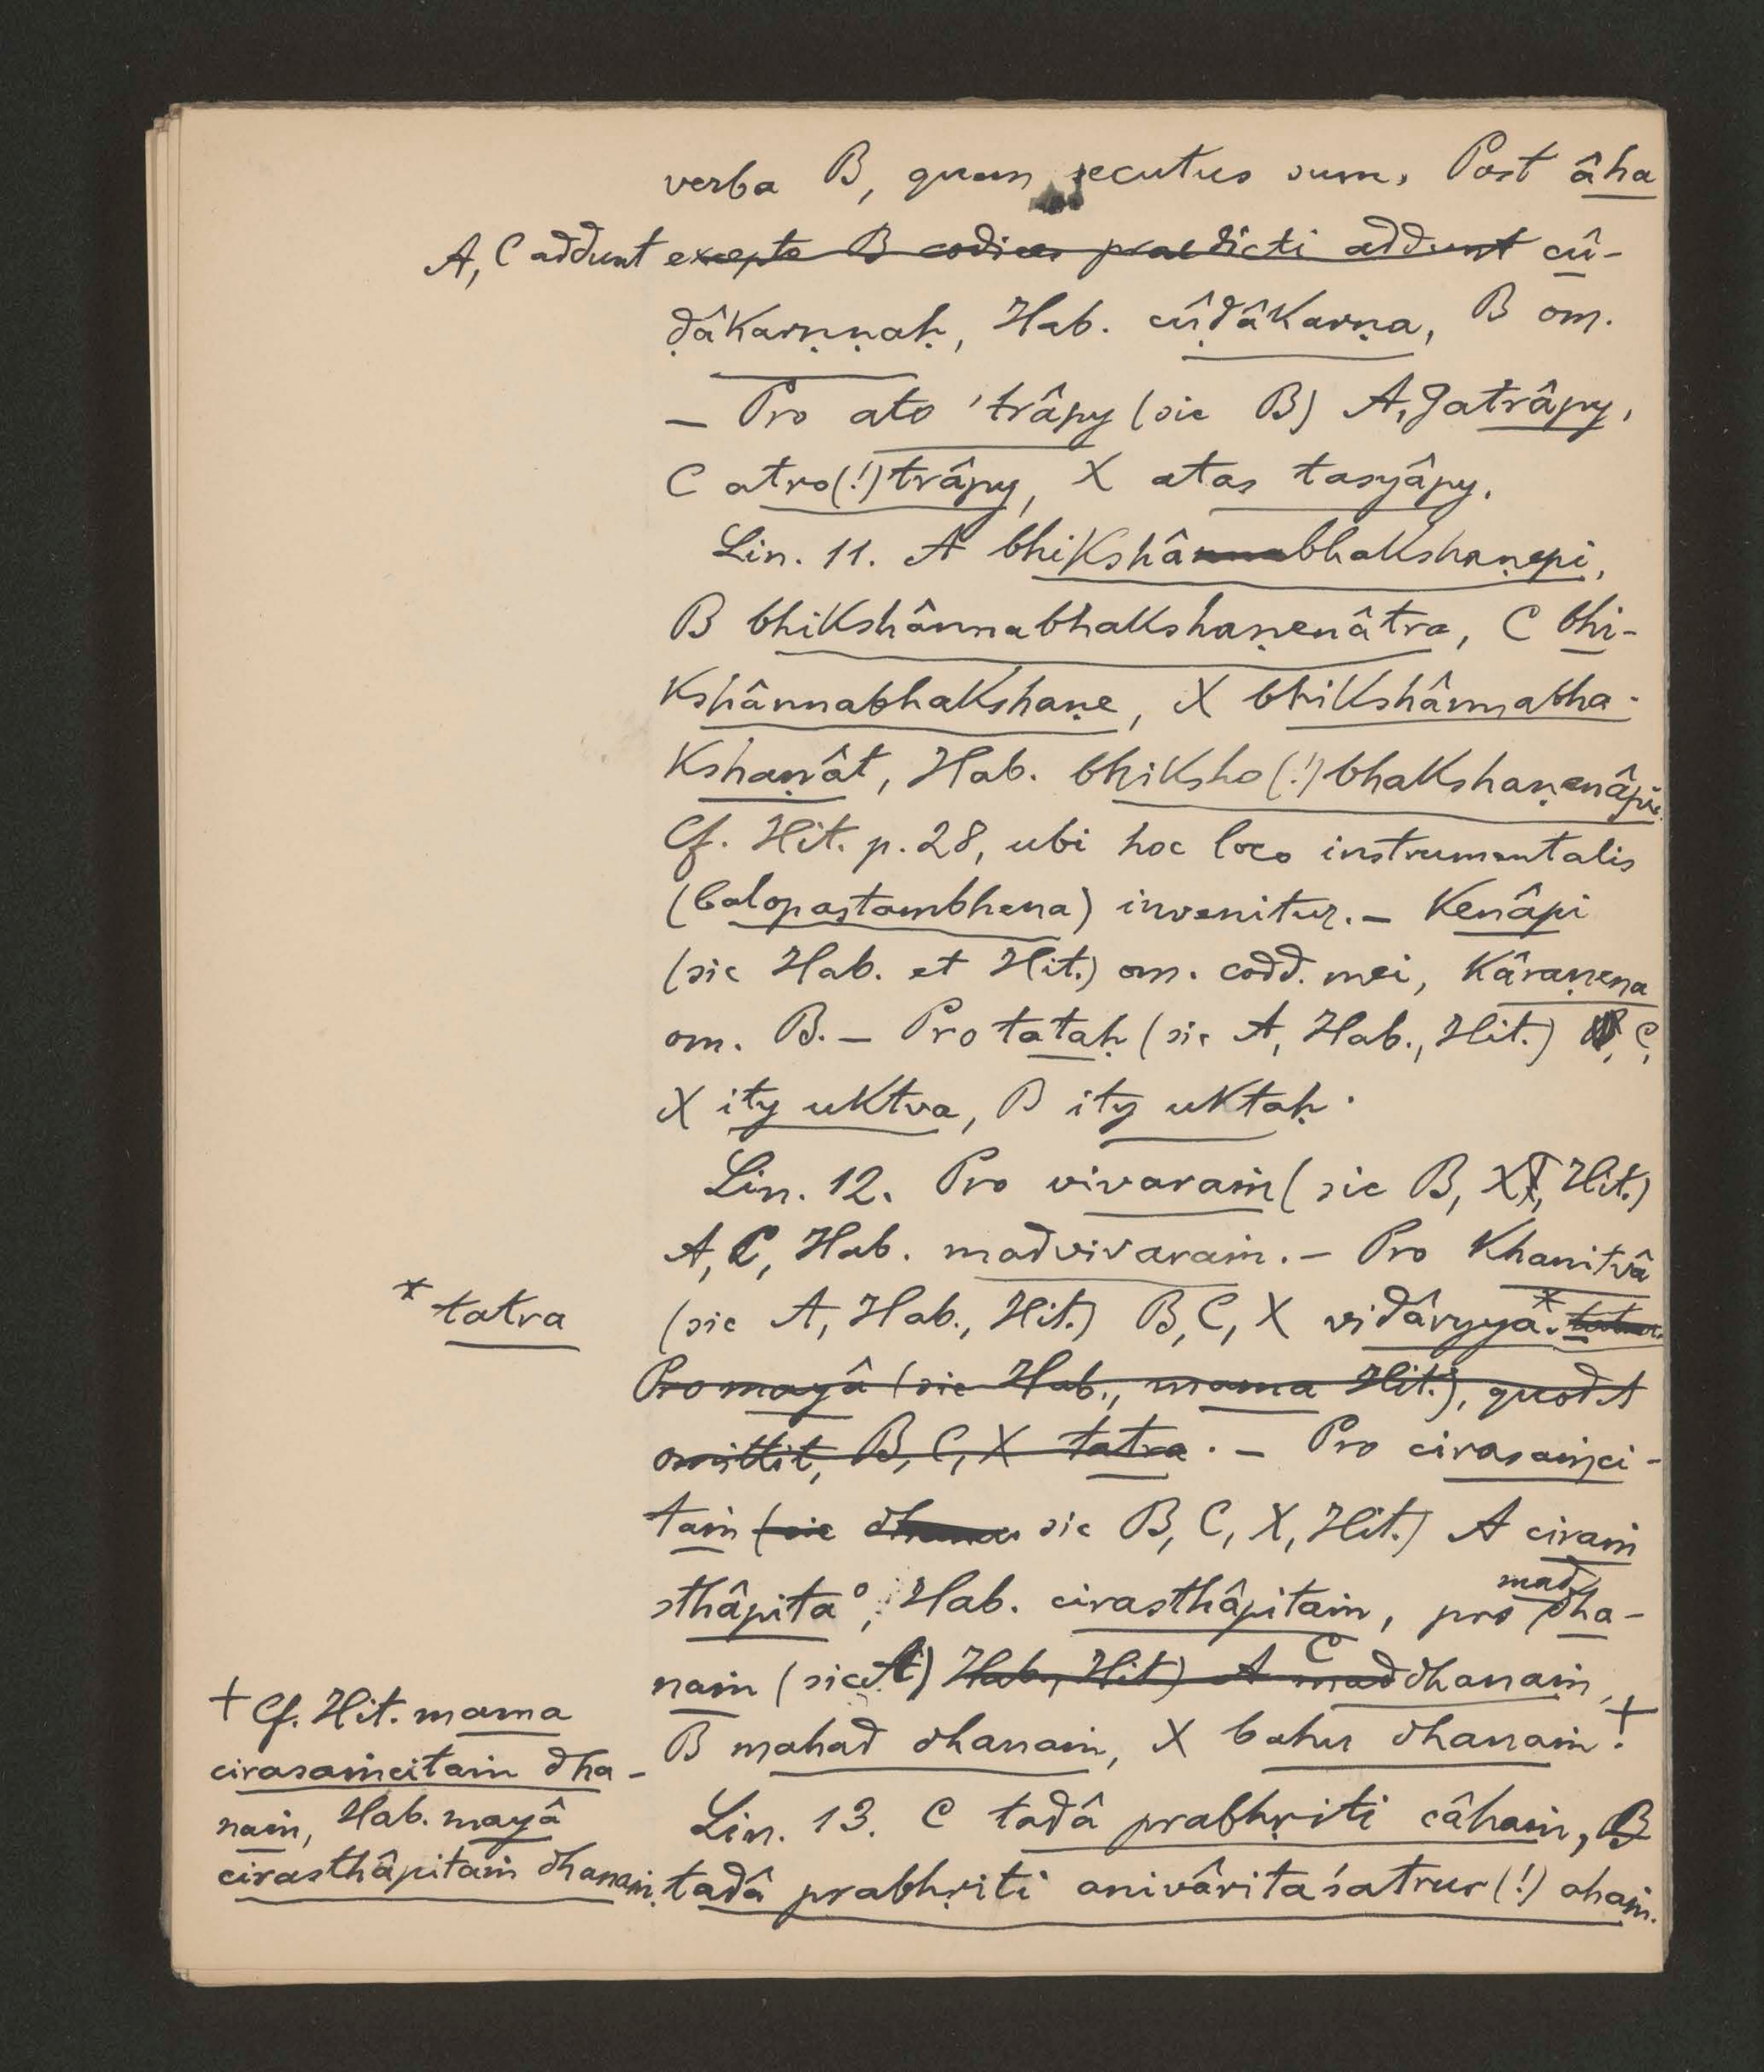 verba B, quem secutus sum. Post âha
A, C addunt excepto B codices praedicti addunt cû-
ḍâkarṇṇaḥ, Hab. cûḍâkarṇa, B om.
– Pro ato 'trâpy (sic B) A, Jatrâpy,
C atro(!)trâpy, X atas tasyâpy.
Lin. 11. A bhikshânnabhakshaṇepi,
B bhikshânnabhakshaṇenâtra, C bhi-
kshânnabhakshaṇe, X bhikshânnabha-
kshaṇât, Hab. bhiksho(!)bhakshaṇenâpi.
Cf. Hit. p. 28, ubi hoc loco instrumentalis
(balopastambhena) invenitur. – Kenâpi
(sic Hab. et Hit.) om. codd. mei, kâraṇena
om. B. – Pro tataḥ (sic A, Hab., Hit.) C,
X ity uktva, B ity uktaḥ.
Lin. 12. Pro vivaraṁ (sic B, X, Hit.)
A, C, Hab. madvivaraṁ. – Pro Khanitvâ
* tatra
(sic A, Hab., Hit.) B, C, X vidâryya.* tatra
Pro mayâ (sic Hab., mama Hit.), quod A
omittit, B, C, X tatra. – Pro cirasaṁci-
taṁ (sic sic B, C, X, Hit.) A ciraṁ
sthâpita°, Hab. cirasthâpitaṁ, pro mad dha-
naṁ (sic A) Hab., Hit) A C mad dhanaṁ,
B mahad dhanaṁ, X bahu dhanaṁ. +
+ Cf. Hit. mama
cirasaṁcitaṁ dha-
naṁ, Hab. mayâ
cirasthâpitaṁ dhanaṁ.
Lin. 13. C tadâ prabhṛiti câhaṁ, B
tadâ prabhṛiti anivâritaśatrur(!) ahaṁ.